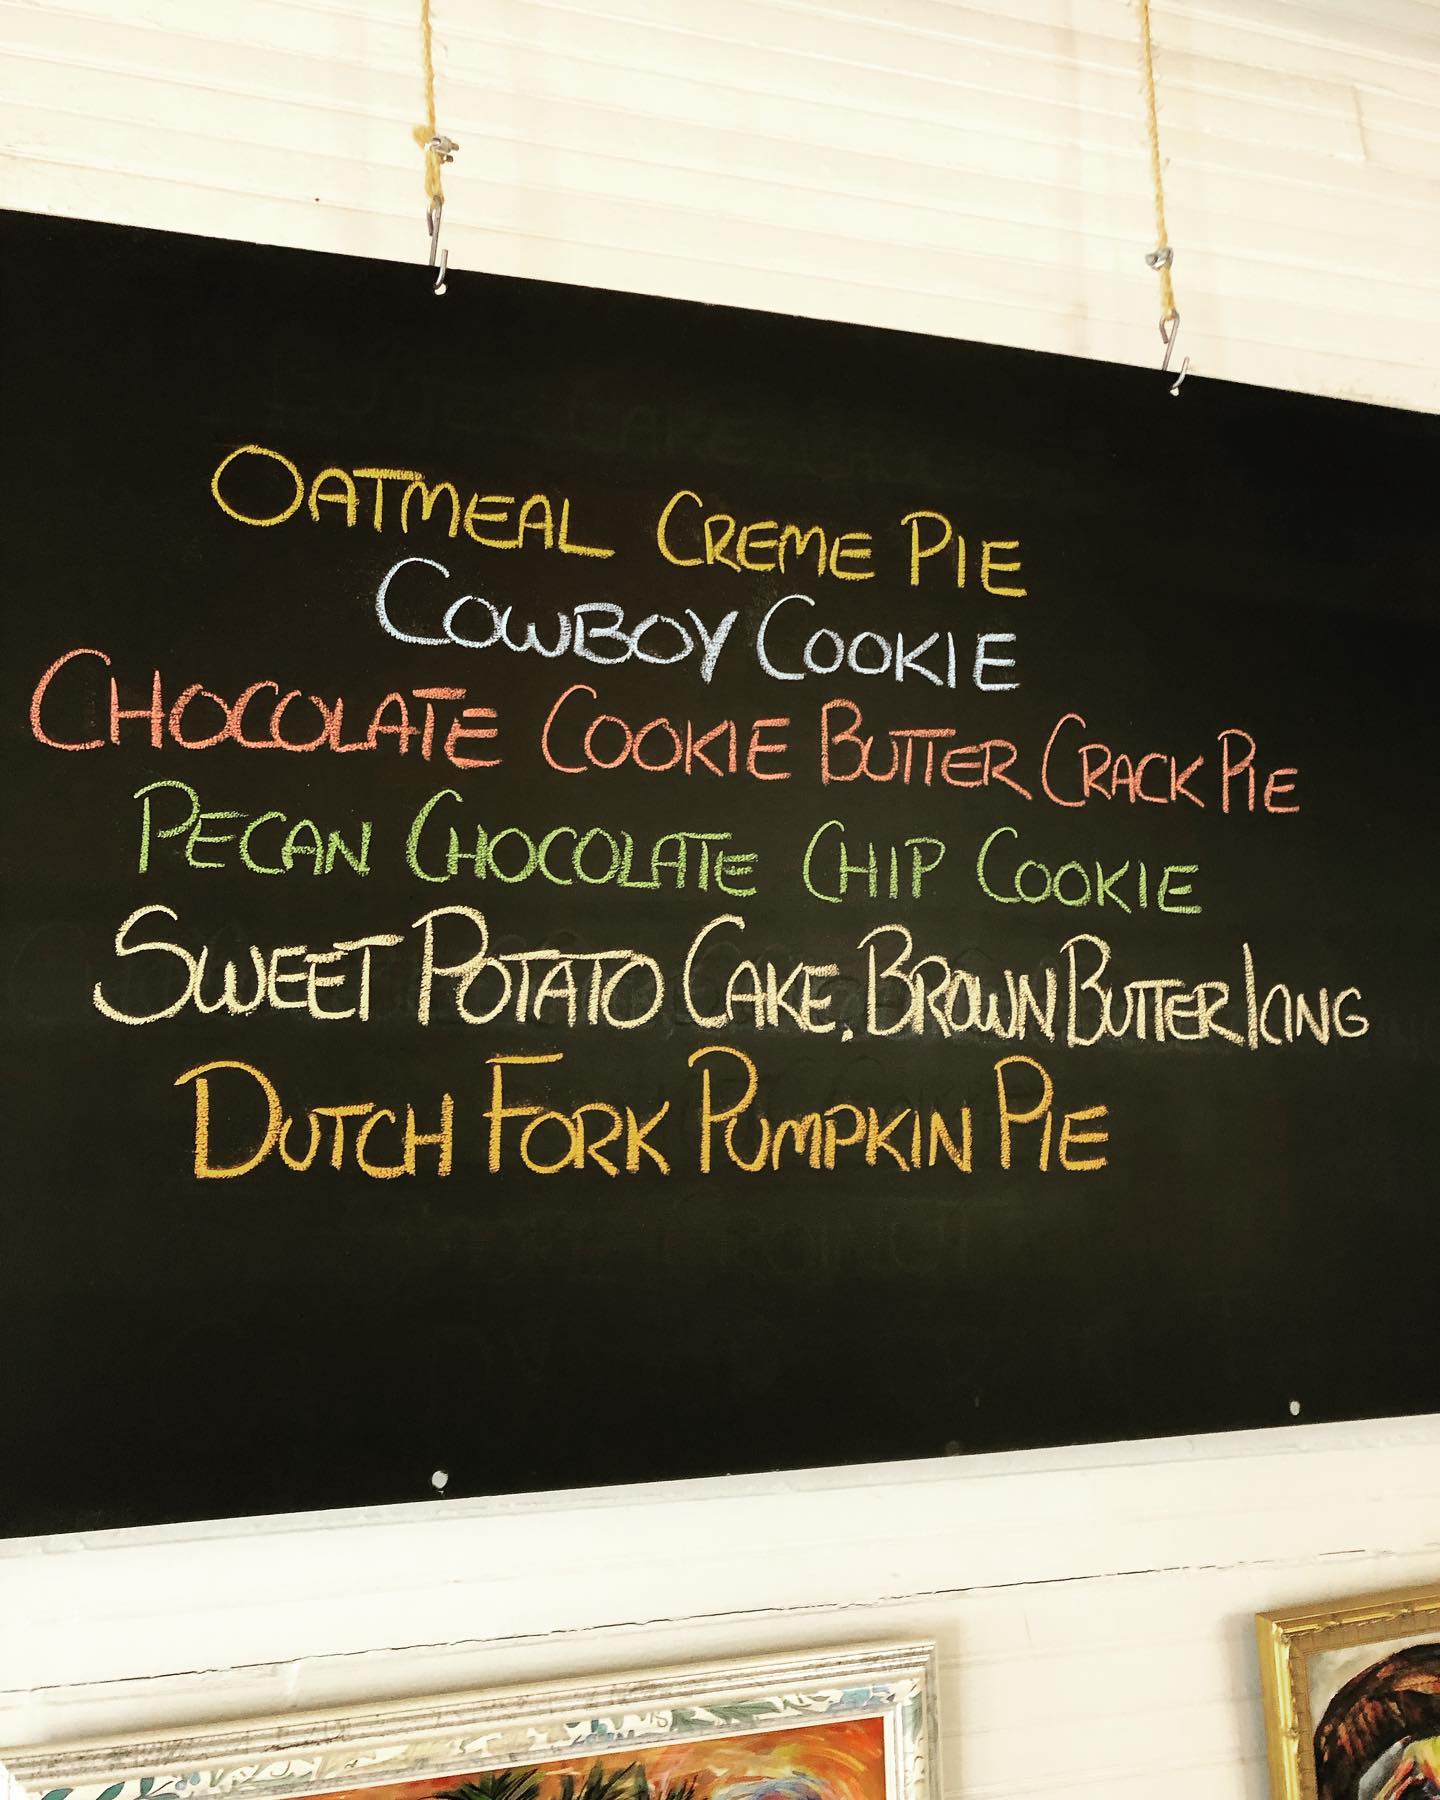 OATMEAL CREME PIE
COWBOY COOKIE
CHOCOLATE COOKIE BUTTER CRACK PIE
PECAN CHOCOLATE CHIP COOKIE
SWEET POTATO CAKE, BROWN BUTTER ICING
DUTCH FORK PUMPKIN PIE